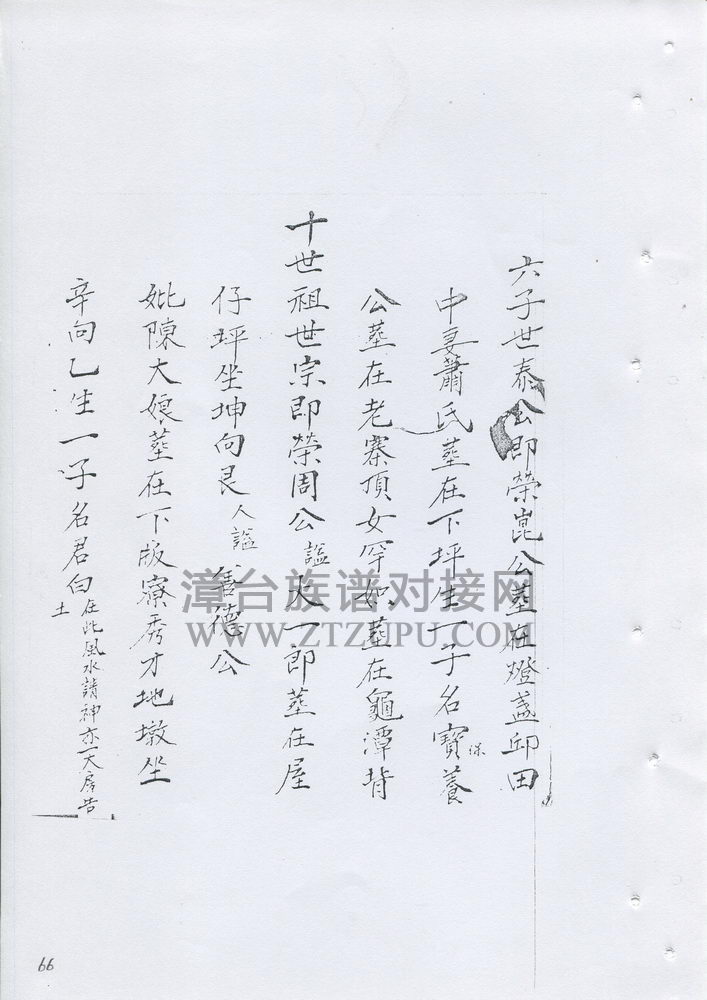 六子世泰公即榮崑公墓在燈盞邱田
中妻蕭氏墓在下坪生一子名寳養
保
公墓在老寨頂女罕如墓在龜潭背
十世祖世宗即榮周公謚大一郎墓在屋
仔坪坐坤向艮人謚善德公
妣陳大娘墓在下版寮秀才地墩坐
辛向乙生一子名君白
在此風水請神亦一大房告
土
漳台族谱对接网
WWW.ZTZUPU.COM
66